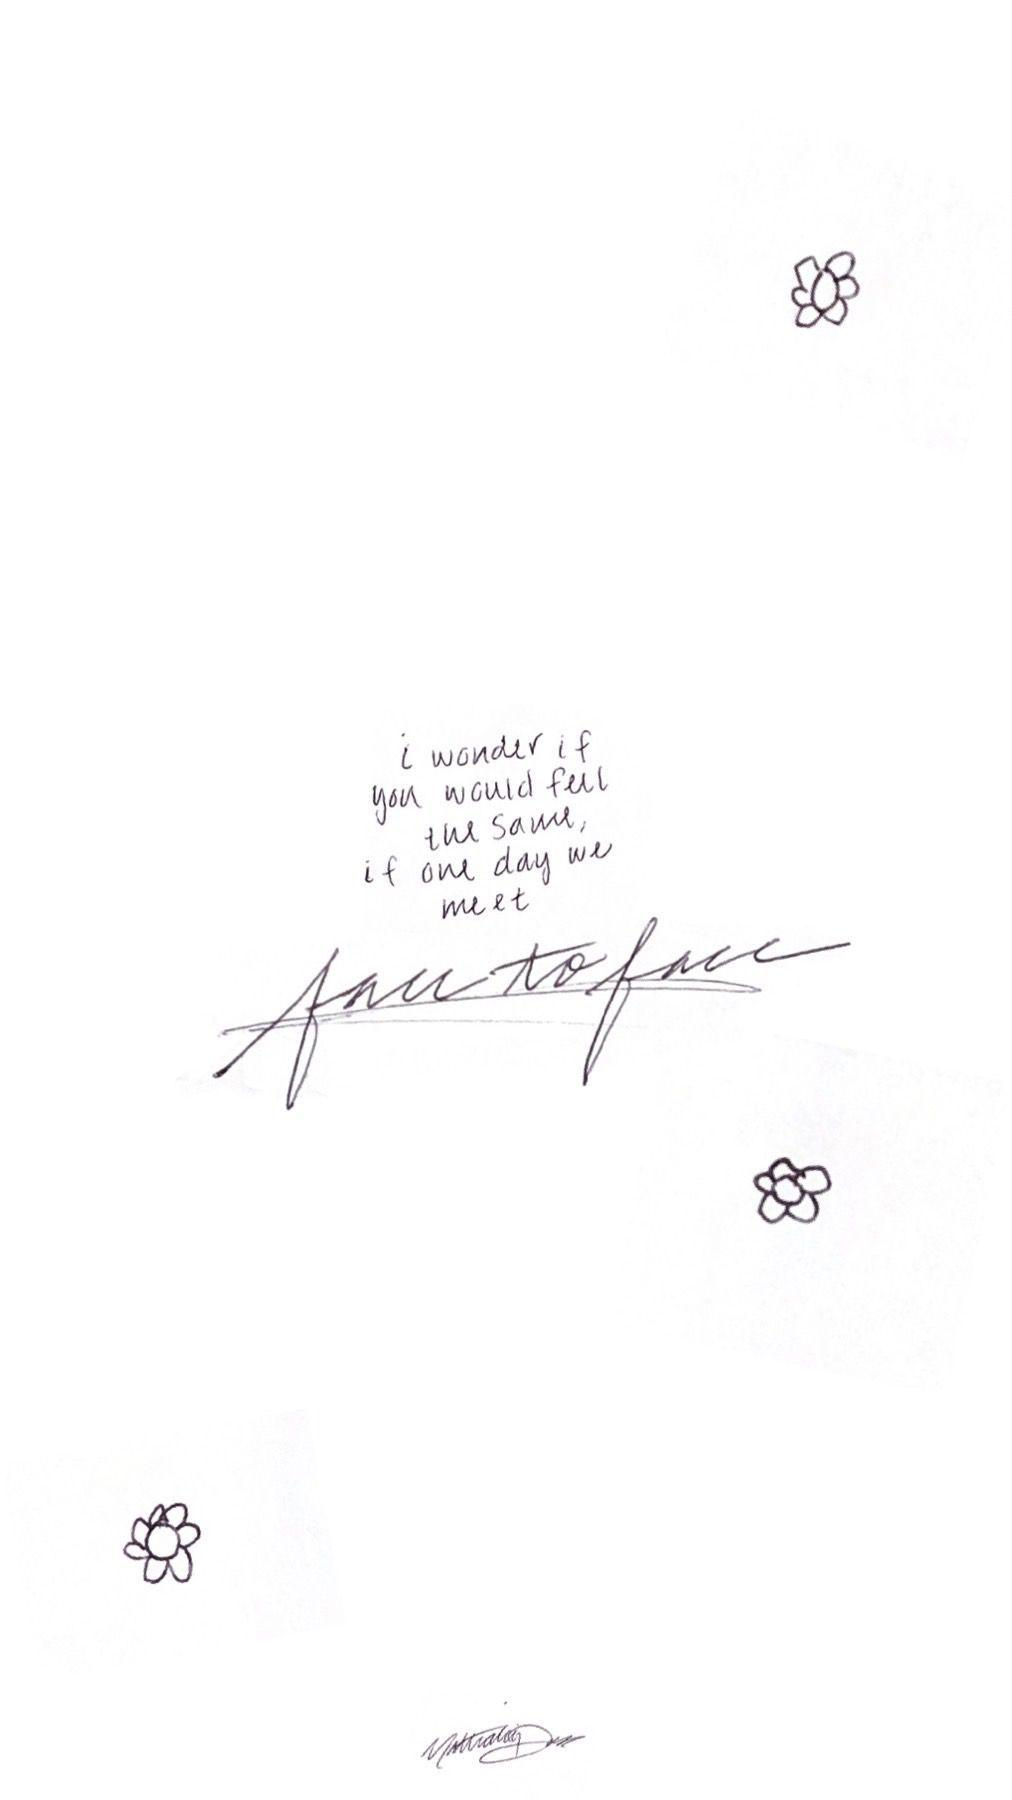 i wonder if
you would feel
the same,
if one day we
meet
face to face